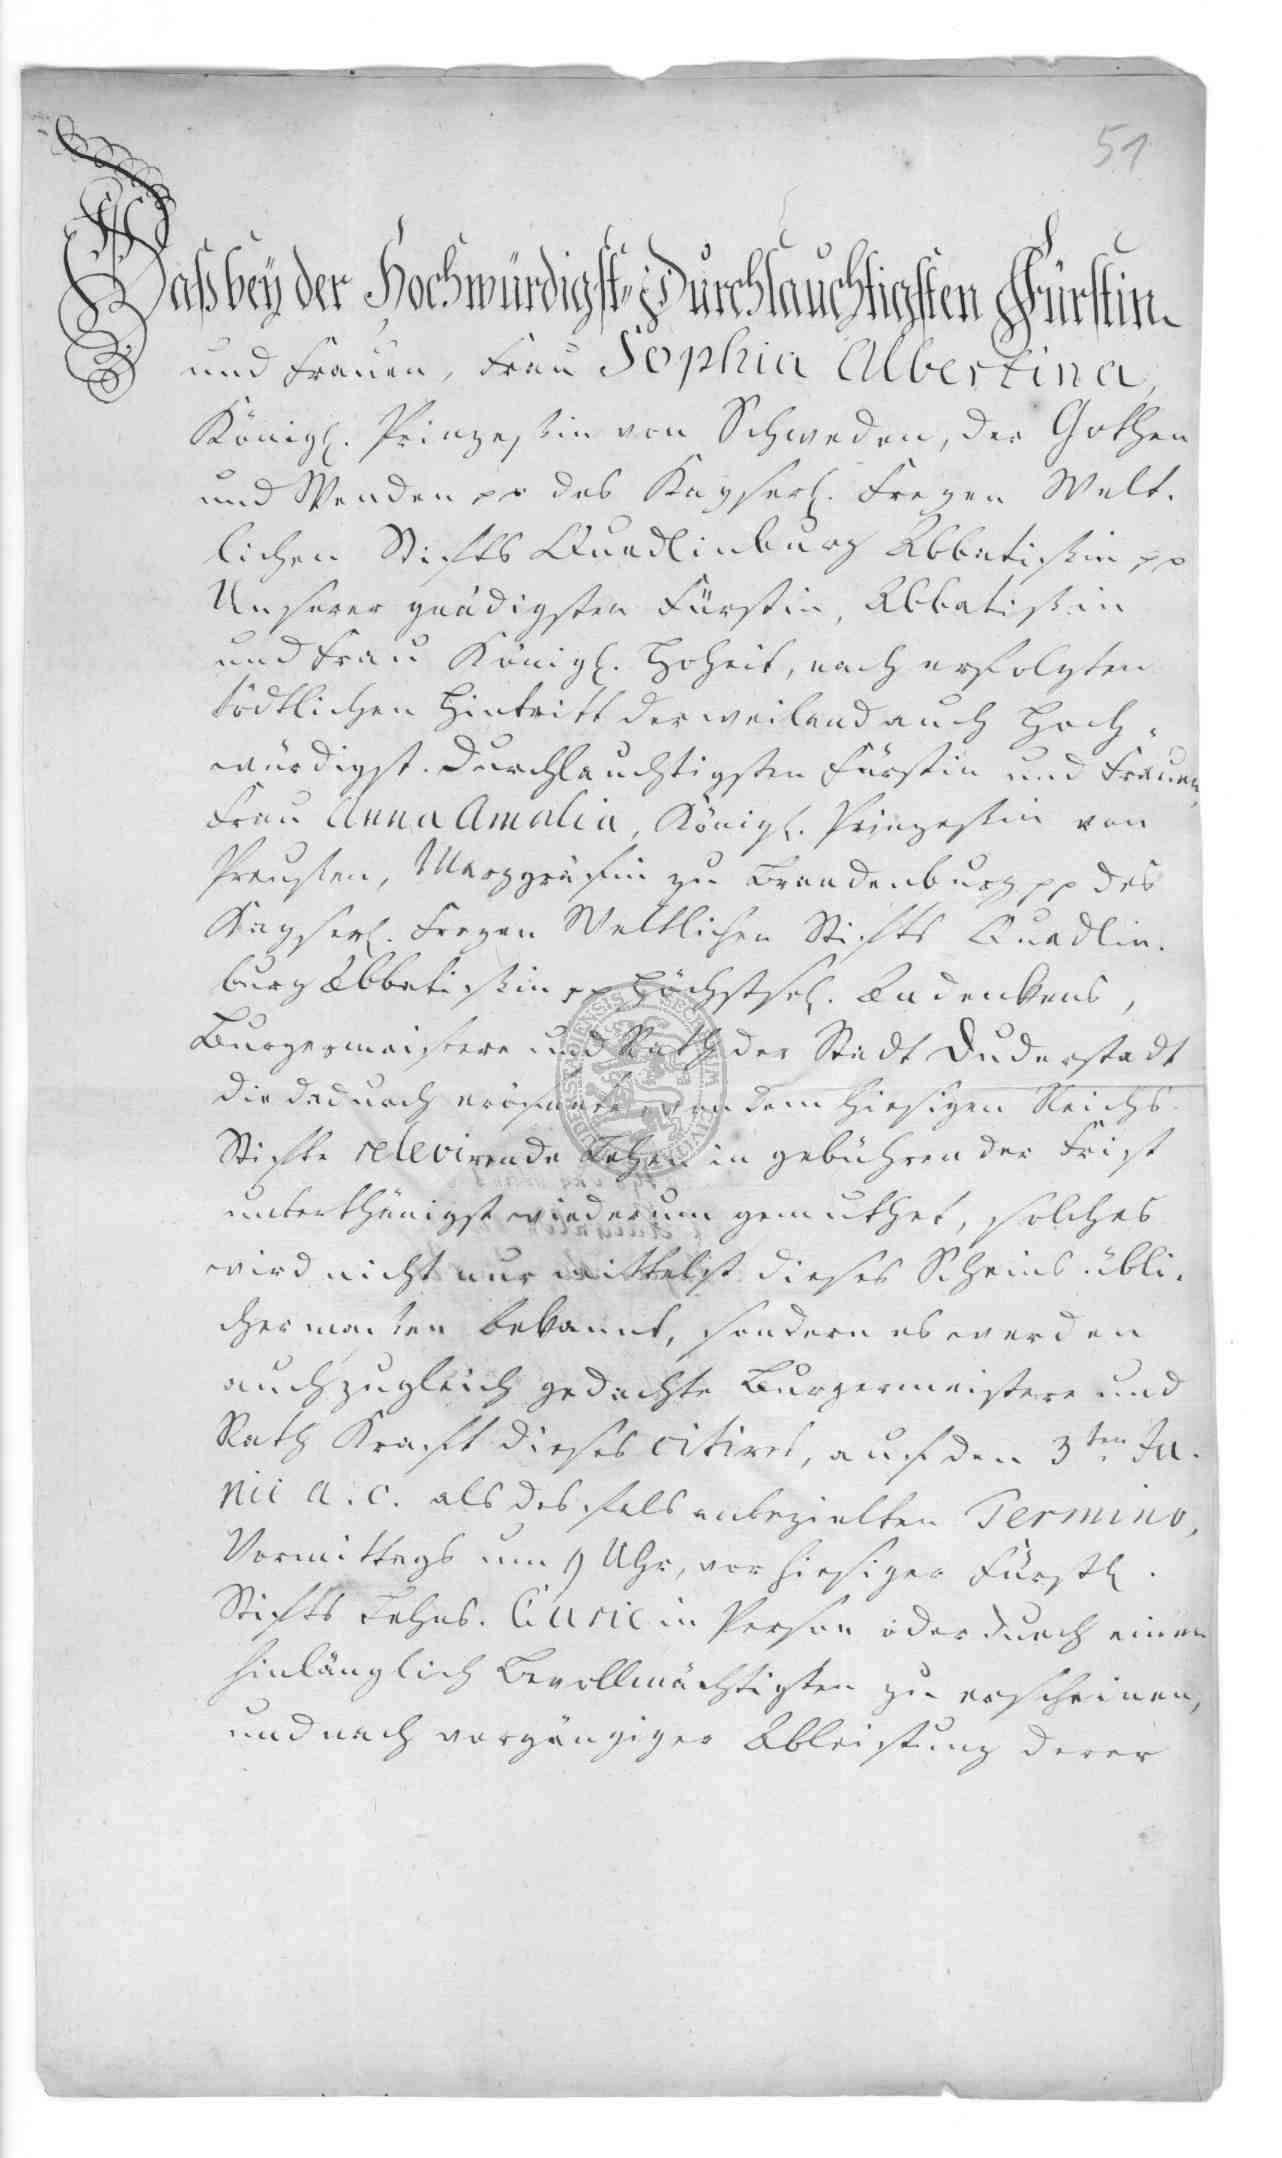 51
Daß bey der Hochwürdigst-Durchlauchtigsten Fürstin
und Frauen, Frau Sophia Albertina,
Königl. Prinzeßin von Schweden, der Gothen
und Wenden pp des Kayserl. Freyen Welt-
lichen Stifts Quedlinburg Abbatißin pp
Unserer gnädigsten Fürstin, Abbatißin
und Frau Königl. Hoheit, nach erfolgten
tödtlichen Hintritt der weiland auch Hoch-
würdigst-Durchlauchtigsten Fürstin und Frauen,
Frau Anna Amalia, Königl. Prinzeßin von
Preußen, Marggräfin zu Brandenburg pp des
Kayserl. Freyen Weltlichen Stifts Quedlin-
burg Abbatißin pp Höchstsel. Andenkens,
Burgermeistere und Rath der Stadt Duderstadt
die dadurch eröfnete, von dem hiesigen Reichs-
Stifte relevirende Lehen in gebührender Frist
unterthänigst wiederum gemuthet, solches
wird nicht nur mittelst dieses Scheins übli-
chermaßen bekannt, sondern es werden
auch zugleich gedachte Burgermeistere und
Rath Kraft dieses citiret, auf den 3ten Ju-
nii a. c. als desfals anbezielten Termino,
Vormittags um 9 Uhr, vor hiesiger Fürstl.
Stifts Lehns-Curie in Person oder durch einen
hinlänglich Bevollmächtigten zu erscheinen,
und nach vorgängiger Ableistung derer